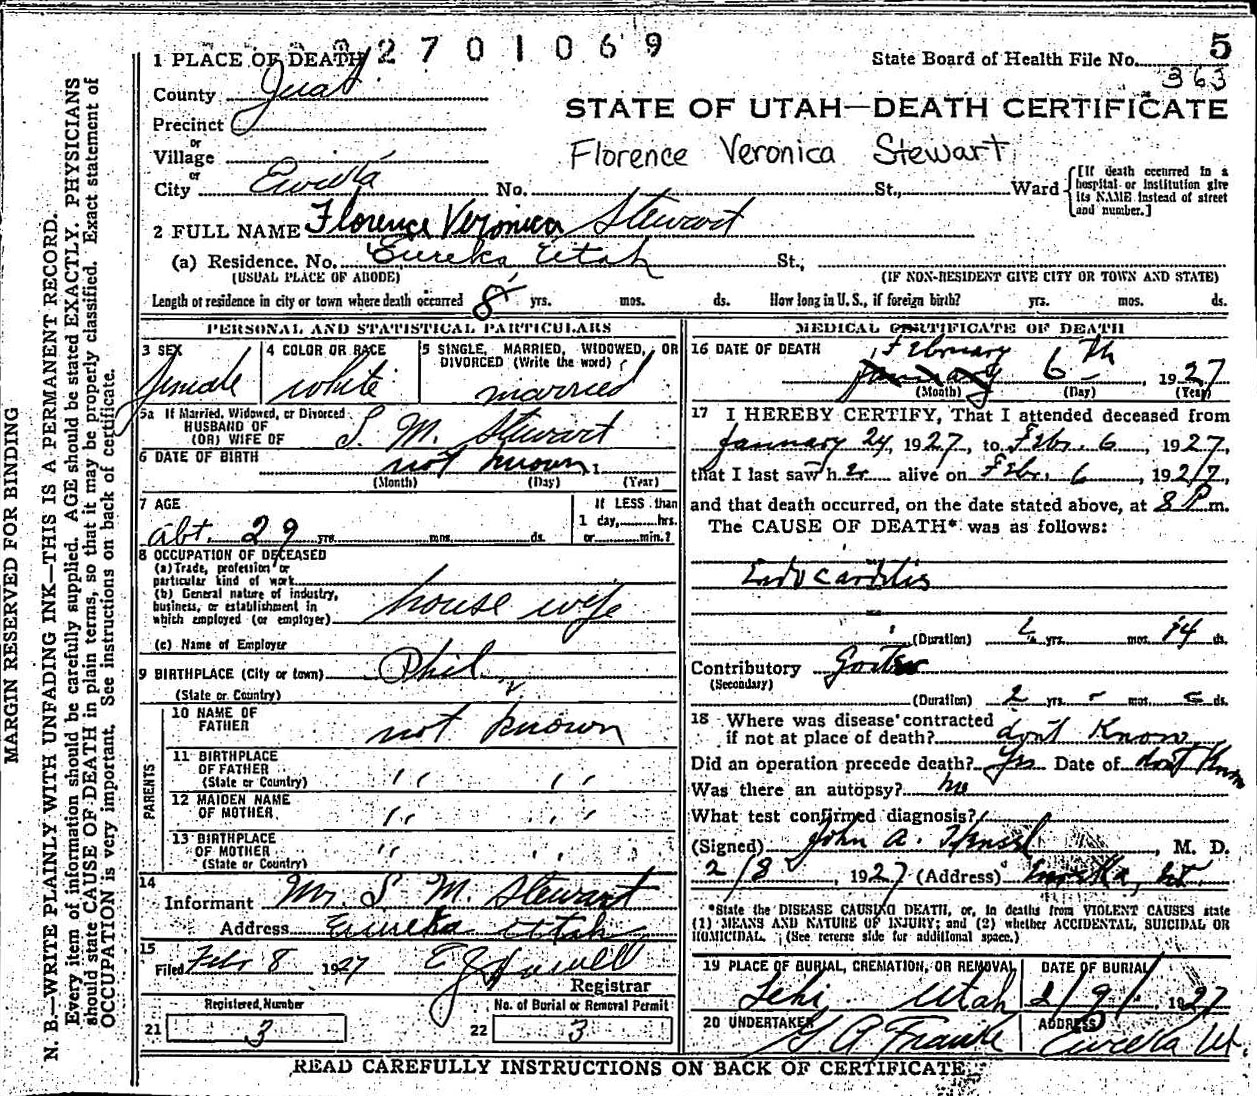 2701069
State Board of Health File No. 5
363
1 PLACE OF DEATH
County Juab
STATE OF UTAH—DEATH CERTIFICATE
Precinct
or
Village
Florence Veronica Stewart
or
City Eureka No. St., Ward
[If death occurred in a hospital or institution give its NAME instead of street and number.]
2 FULL NAME Florence Veronica Stewart
(a) Residence, No. Eureka Utah St.,
(USUAL PLACE OF ABODE) (IF NON-RESIDENT GIVE CITY OR TOWN AND STATE)
Length of residence in city or town where death occurred 8 yrs. mos. ds. How long in U. S., if foreign birth? yrs. mos. ds.
PERSONAL AND STATISTICAL PARTICULARS
3 SEX female
4 COLOR OR RACE white
5 SINGLE, MARRIED, WIDOWED, OR DIVORCED (Write the word) married
5a If Married, Widowed, or Divorced
HUSBAND OF
(OR) WIFE OF S. M. Stewart
6 DATE OF BIRTH not known
(Month) (Day) (Year)
7 AGE abt. 29 yrs. mos. ds.
If LESS than
1 day, hrs.
or min.?
8 OCCUPATION OF DECEASED
(a) Trade, profession or
particular kind of work
(b) General nature of industry,
business, or establishment in
which employed (or employer) house wife
(c) Name of Employer
9 BIRTHPLACE (City or town) Phil.
(State or Country)
PARENTS
10 NAME OF
FATHER not known
11 BIRTHPLACE
OF FATHER
(State or Country) " "
12 MAIDEN NAME
OF MOTHER " "
13 BIRTHPLACE
OF MOTHER
(State or Country) " "
14
Informant Mr. S M. Stewart
Address Eureka Utah
15
Filed Febr 8 1927 E J Howell
Registrar
Registered Number No. of Burial or Removal Permit
21 3 22 3
MEDICAL CERTIFICATE OF DEATH
16 DATE OF DEATH February 6th, 1927
January
(Month) (Day) (Year)
17 I HEREBY CERTIFY, That I attended deceased from
January 24, 1927, to Febr. 6, 1927,
that I last saw her alive on Febr. 6, 1927,
and that death occurred, on the date stated above, at 8 P m.
The CAUSE OF DEATH* was as follows:
Endocarditis
(Duration) yrs. mos. 14 ds.
Contributory Goiter
(Secondary)
(Duration) 2 yrs. - mos. ds.
18 Where was disease contracted
if not at place of death? don't Know
Did an operation precede death? Yes Date of don't Know
Was there an autopsy? no
What test confirmed diagnosis?
(Signed) John A. , M. D.
2/8, 1927 (Address) Eureka, Ut.
*State the DISEASE CAUSING DEATH, or, in deaths from VIOLENT CAUSES state
(1) MEANS AND NATURE OF INJURY; and (2) whether ACCIDENTAL, SUICIDAL OR
HOMICIDAL. (See reverse side for additional space.)
19 PLACE OF BURIAL, CREMATION, OR REMOVAL DATE OF BURIAL
Lehi Utah 2/9/ 1927
20 UNDERTAKER ADDRESS
G A Franke Eureka Ut.
READ CAREFULLY INSTRUCTIONS ON BACK OF CERTIFICATE
MARGIN RESERVED FOR BINDING
N. B.—WRITE PLAINLY WITH UNFADING INK—THIS IS A PERMANENT RECORD.
Every item of information should be carefully supplied. AGE should be stated EXACTLY. PHYSICIANS
should state CAUSE OF DEATH in plain terms, so that it may be properly classified. Exact statement of
OCCUPATION is very important. See instructions on back of certificate.